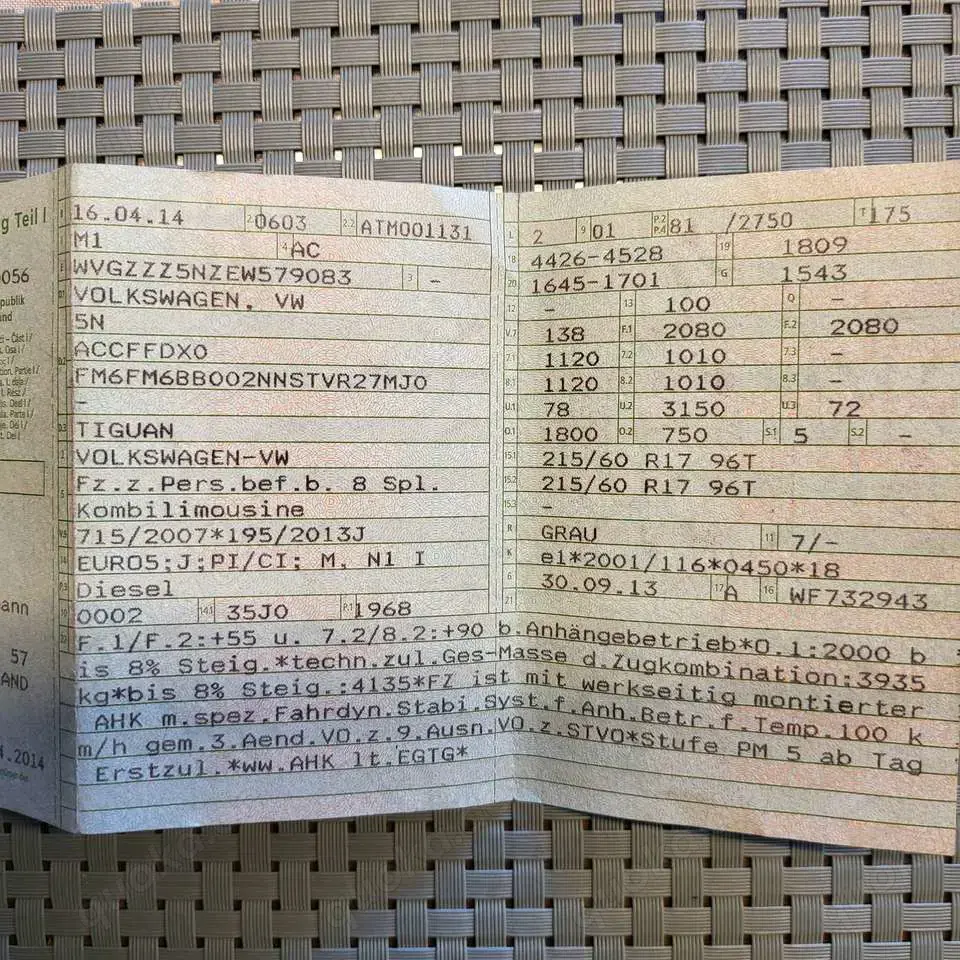 g Teil I
0056
publik
and
ann
57
AND
4.2014
16.04.14 2 0603 2.2 ATM001131
M1 4 AC
E WVGZZZ5NZEW579083 3 -
D.1 VOLKSWAGEN, VW
5N
D.2 ACCFFDX0
FM6FM6BB002NNSTVR27MJ0
-
D.3 TIGUAN
2 VOLKSWAGEN-VW
5 Fz.z.Pers.bef.b. 8 Spl.
Kombilimousine
V.9 715/2007*195/2013J
14 EURO5;J;PI/CI; M, N1 I
P.3 Diesel
10 0002 14.1 35J0 P.1 1968
L 2 9 01 P.2 P.4 81 /2750 T 175
18 4426-4528 19 1809
20 1645-1701 G 1543
12 - 13 100 Q -
V.7 138 F.1 2080 F.2 2080
7.1 1120 7.2 1010 7.3 -
8.1 1120 8.2 1010 8.3 -
U.1 78 U.2 3150 U.3 72
O.1 1800 O.2 750 S.1 5 S.2 -
15.1 215/60 R17 96T
15.2 215/60 R17 96T
15.3 -
R GRAU 11 7/-
K e1*2001/116*0450*18
6 30.09.13 17 A 16 WF732943
21
22 F.1/F.2:+55 u. 7.2/8.2:+90 b.Anhängebetrieb*O.1:2000 b
is 8% Steig.*techn.zul.Ges-Masse d.Zugkombination:3935
kg*bis 8% Steig.:4135*FZ ist mit werkseitig montierter
AHK m.spez.Fahrdyn.Stabi.Syst.f.Anh.Betr.f.Temp.100 k
m/h gem.3.Aend.VO.z.9.Ausn.VO.z.STVO*Stufe PM 5 ab Tag
Erstzul.*ww.AHK lt.EGTG*